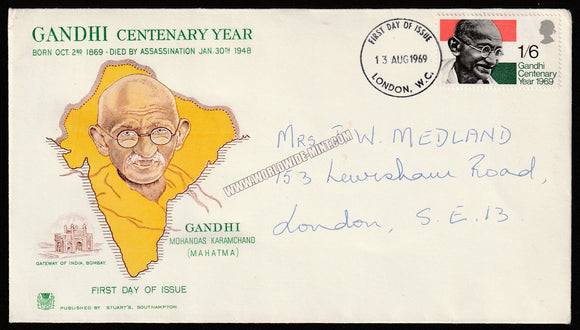 GANDHI CENTENARY YEAR
BORN OCT. 2ND 1869 - DIED BY ASSASSINATION JAN. 30TH 1948
FIRST DAY OF ISSUE
13 AUG 1969
LONDON, W.C.
1/6
Gandhi
Centenary
Year 1969
Mrs J. W. MEDLAND
153 Lewisham Road,
London, S.E.13.
WWW.WORLDWIDE-MINT.COM
GANDHI
MOHANDAS KARAMCHAND
(MAHATMA)
GATEWAY OF INDIA, BOMBAY.
FIRST DAY OF ISSUE
PUBLISHED BY STUART'S, SOUTHAMPTON